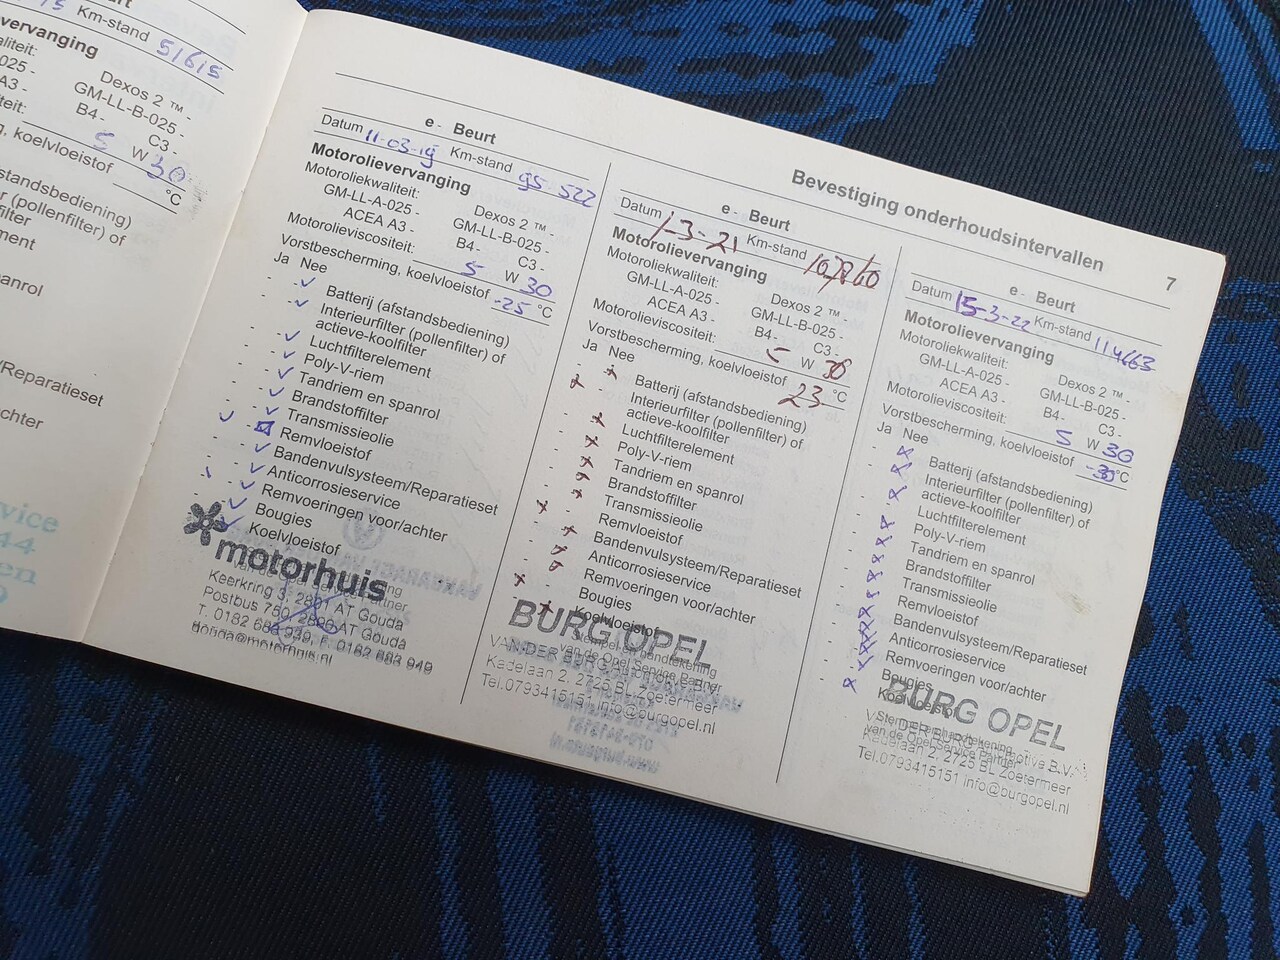 Km-stand 51615
vervanging
aliteit:
Dexos 2 ™ -
-025 -
GM-LL-B-025 -
A3 -
B4 -
C3 -
teit:
5 W 30
g, koelvloeistof °C
standsbediening)
r (pollenfilter) of
filter
ment
anrol
/Reparatieset
achter
vice
44
en
Bevestiging onderhoudsintervallen
7
e - Beurt
Datum 11-03-19 Km-stand 95 522
Motorolievervanging
Motoroliekwaliteit:
Dexos 2 ™ -
GM-LL-A-025 -
GM-LL-B-025 -
ACEA A3 -
B4 -
C3 -
Motorolieviscositeit: 5 W 30
Vorstbescherming, koelvloeistof -25 °C
Ja Nee
- - Batterij (afstandsbediening)
- - Interieurfilter (pollenfilter) of
actieve-koolfilter
- - Luchtfilterelement
- - Poly-V-riem
- - Tandriem en spanrol
- - Brandstoffilter
- - Transmissieolie
- - Remvloeistof
- - Bandenvulsysteem/Reparatieset
- - Anticorrosieservice
- - Remvoeringen voor/achter
- - Bougies
- - Koelvloeistof
motorhuis
Keerkring 3, 2801 AT Gouda
Postbus 750 AT Gouda
gouda@motorhuis.nl
e - Beurt
Datum 1-3-21 Km-stand
Motorolievervanging
Motoroliekwaliteit:
Dexos 2 ™ -
GM-LL-A-025 -
GM-LL-B-025 -
ACEA A3 -
B4 -
C3 -
Motorolieviscositeit: 5 W 30
Vorstbescherming, koelvloeistof 23 °C
Ja Nee
- - Batterij (afstandsbediening)
- - Interieurfilter (pollenfilter) of
actieve-koolfilter
- - Luchtfilterelement
- - Poly-V-riem
- - Tandriem en spanrol
- - Brandstoffilter
- - Transmissieolie
- - Remvloeistof
- - Bandenvulsysteem/Reparatieset
- - Anticorrosieservice
- - Remvoeringen voor/achter
- - Bougies
- - Koelvloeistof
BURG OPEL
Stempel en handtekening
van de Opel Service Partner
VAN DER BURG
Kadelaan 2, 2725 BL Zoetermeer
Tel.0793415151 info@burgopel.nl
e - Beurt
Datum 15-3-22 Km-stand 114663
Motorolievervanging
Motoroliekwaliteit:
Dexos 2 ™ -
GM-LL-A-025 -
GM-LL-B-025 -
ACEA A3 -
B4 -
C3 -
Motorolieviscositeit: 5 W 30
Vorstbescherming, koelvloeistof -30 °C
Ja Nee
- - Batterij (afstandsbediening)
- - Interieurfilter (pollenfilter) of
actieve-koolfilter
- - Luchtfilterelement
- - Poly-V-riem
- - Tandriem en spanrol
- - Brandstoffilter
- - Transmissieolie
- - Remvloeistof
- - Bandenvulsysteem/Reparatieset
- - Anticorrosieservice
- - Remvoeringen voor/achter
- - Bougies
- - Koelvloeistof
BURG OPEL
Stempel en handtekening
van de Opel Service Partner
VAN DER BURG B.V.
Kadelaan 2, 2725 BL Zoetermeer
Tel.0793415151 info@burgopel.nl